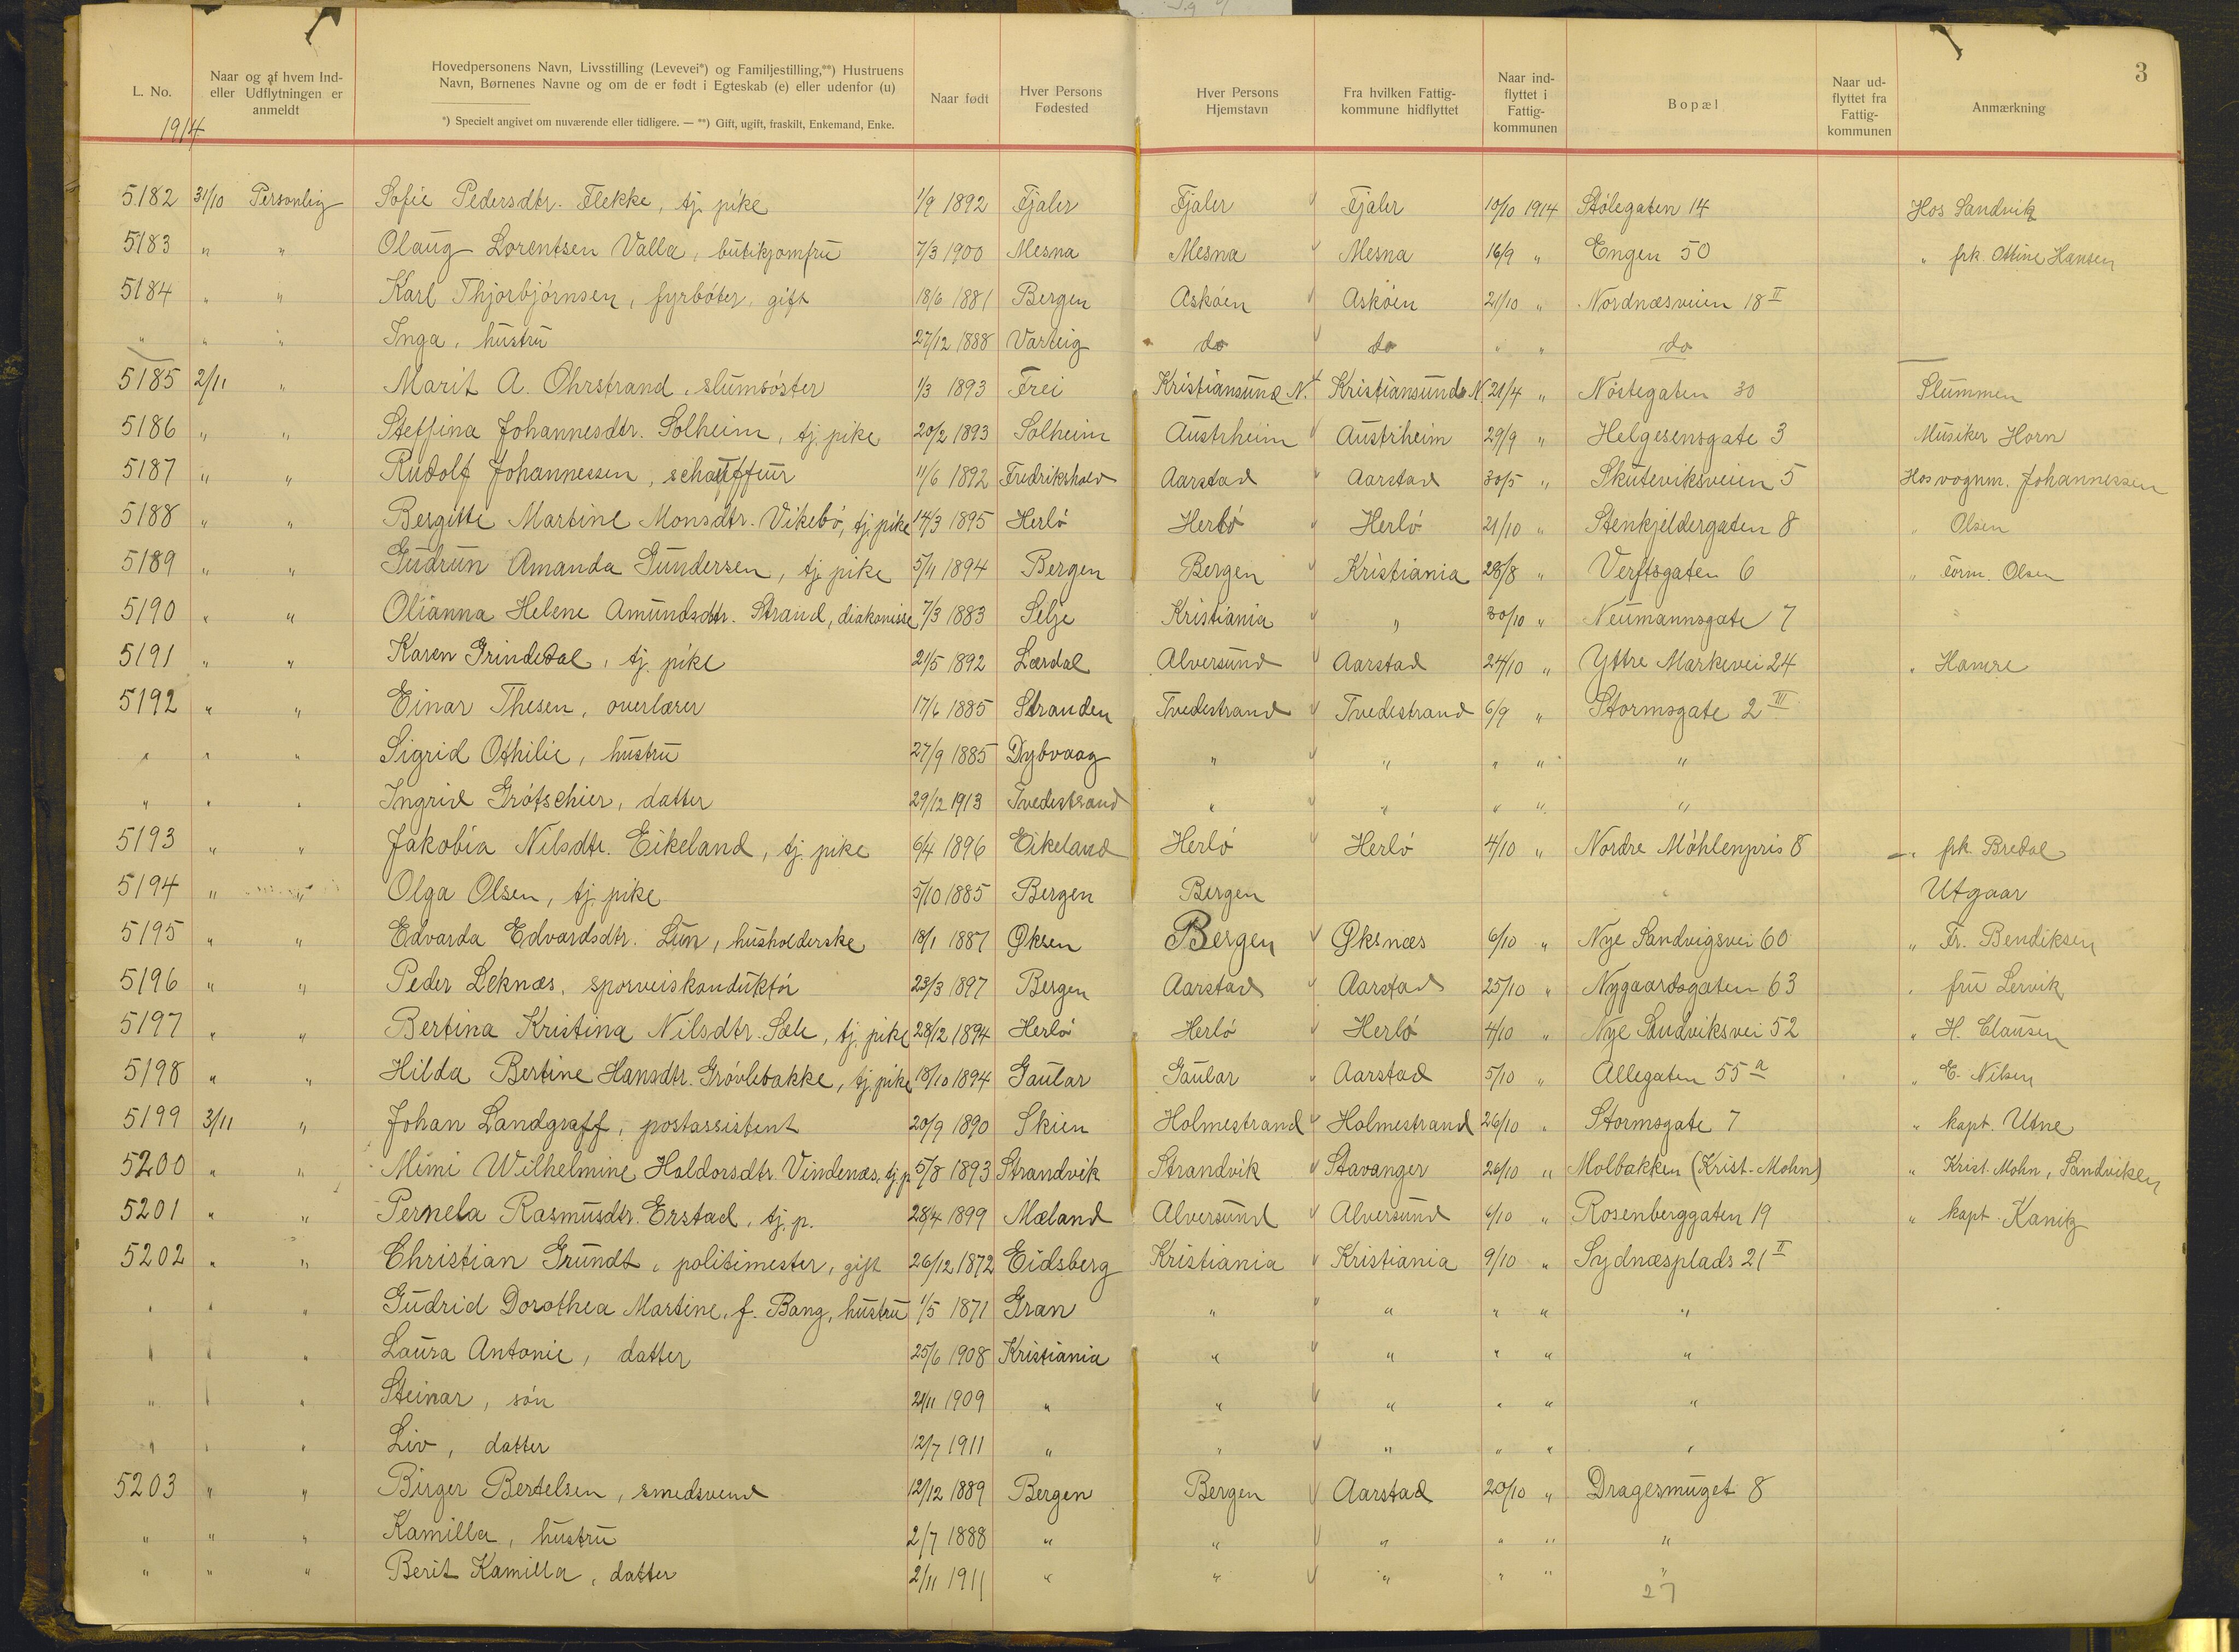 3
L. No.
Naar og af hvem Ind-
eller Udflytningen er
anmeldt
Hovedpersonens Navn, Livsstilling (Levevei*) og Familjestilling,**) Hustruens
Navn, Børnenes Navne og om de er født i Egteskab (e) eller udenfor (u)
*) Specielt angivet om nuværende eller tidligere. — **) Gift, ugift, fraskilt, Enkemand, Enke.
Naar født
Hver Persons
Fødested
Hver Persons
Hjemstavn
Fra hvilken Fattig-
kommune hidflyttet
Naar ind-
flyttet i
Fattig-
kommunen
Bopæl
Naar ud-
flyttet fra
Fattig-
kommunen
Anmærkning
1914
5182 31/10 Personlig Sofie Pedersdtr. Flekke, tj. pike 1/9 1892 Fjaler Fjaler Fjaler 10/10 1914 Stølegaten 14 Hos Sandvik
5183 " " Olaug Lorentsen Valla, butikjomfru 7/3 1900 Mesna Mesna Mesna 16/9 " Engen 50 " frk. Ottine Hansen
5184 " " Karl Thjorbjørnsen, fyrbøter, gift 18/6 1881 Bergen Askøen Askøen 21/10 " Nordnæsveien 18 II
" " " Inga, hustru 27/12 1888 Varteig do do " " do
5185 2/11 " Marit A. Ohrstrand, slumsøster 1/3 1893 Frei Kristiansund N. Kristiansund N. 21/4 " Nøstegaten 30 Slummen
5186 " " Steffina Johannesdtr. Solheim, tj. pike 20/2 1893 Solheim Austrheim Austrheim 29/9 " Helgesensgate 3 Musiker Horn
5187 " " Rudolf Johannessen, schauffeur 11/6 1892 Fredrikshald Aarstad Aarstad 30/5 " Skuteviksveien 5 Hos vognm. Johannessen
5188 " " Bergitte Martine Monsdtr. Vikebø, tj. pike 14/3 1895 Herlø Herlø Herlø 21/10 " Stenkjeldergaten 8 " Olsen
5189 " " Gudrun Amanda Gundersen, tj. pike 5/11 1894 Bergen Bergen Kristiania 28/8 " Verftsgaten 6 " Form. Olsen
5190 " " Olianna Helene Amundsdtr. Strand, diakonisse 7/3 1883 Selje Kristiania " 30/10 " Neumannsgate 7
5191 " " Karen Grindedal, tj. pike 21/5 1892 Lærdal Alversund Aarstad 24/10 " Yttre Markevei 24 " Hamre
5192 " " Einar Thesen, overlærer 17/6 1885 Stranden Tvedestrand Tvedestrand 6/9 " Stormsgate 2 III
" " " Sigrid Othilie, hustru 27/9 1885 Dybvaag " " " " "
" " " Ingrid Grøtschier, datter 29/12 1913 Tvedestrand " " " " "
5193 " " Jakobia Nilsdtr. Eikeland, tj. pike 6/4 1896 Eikeland Herlø Herlø 4/10 " Nordre Møhlenpris 8 " frk. Bredal
5194 " " Olga Olsen, tj. pike 5/10 1885 Bergen Bergen Utgaar
5195 " " Edvarda Edvardsdtr. Lun, husholderske 18/1 1887 Øksen Bergen Øksnæs 6/10 " Nye Sandvigsvei 60 " Fr. Bendiksen
5196 " " Peder Leknæs, sporveiskonduktør 23/3 1897 Bergen Aarstad Aarstad 25/10 " Nygaardsgaten 63 " fru Lervik
5197 " " Bertina Kristina Nilsdtr. Sæle, tj. pike 28/12 1894 Herlø Herlø Herlø 4/10 " Nye Sandviksvei 52 " H. Clausen
5198 " " Hilda Bertine Hansdtr. Grøvlebakke, tj. pike 18/10 1894 Gaular Gaular Aarstad 5/10 " Allegaten 55 a " E. Nilsen
5199 3/11 " Johan Landgraff, postassistent 20/9 1890 Skien Holmestrand Holmestrand 26/10 " Stormsgate 7 " kapt. Utne
5200 " " Mimi Wilhelmine Haldorsdtr. Vindenæs, tj. p 5/8 1893 Strandvik Strandvik Stavanger 26/10 " Molbakken (Krist. Mohn) " Krist. Mohn, Sandviken
5201 " " Pernela Rasmusdtr. Erstad, tj. p. 28/4 1899 Mæland Alversund Alversund 6/10 " Rosenberggaten 19 " kapt. Kanitz
5202 " " Christian Grundt, politimester, gift 26/12 1872 Eidsberg Kristiania Kristiania 9/10 " Sydnæsplads 21 II
" " " Gudrid Dorothea Martine, f. Bang, hustru 1/5 1871 Gran " " " " "
" " " Laura Antonie, datter 25/6 1908 Kristiania " " " " "
" " " Steinar, søn 21/11 1909 " " " " " "
" " " Liv, datter 12/7 1911 " " " " " "
5203 " " Birger Bertelsen, smedsvend 12/12 1889 Bergen Bergen Aarstad 20/10 " Dragesmuget 8
" " " Kamilla, hustru 2/7 1888 " " " " " "
" " " Berit Kamilla, datter 2/11 1911 " " " " " "
27